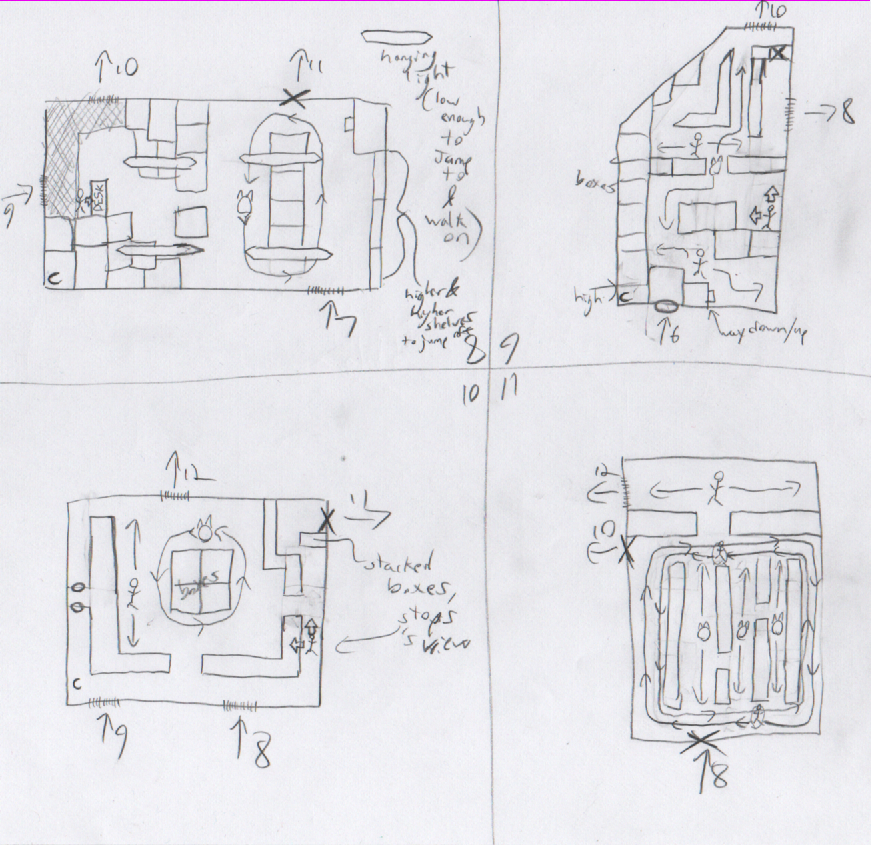 ↑10
↑11
hanging
light
(low
enough
to
jump
to
&
walk
on)
9
DESK
C
higher &
higher
shelves
to jump
7
8
↑10
→8
boxes
high
C
↑6
way down/up
9
10
↑12
11
boxes
stacked
boxes,
stops
's view
C
↑9
↑8
11
12
10
↑8